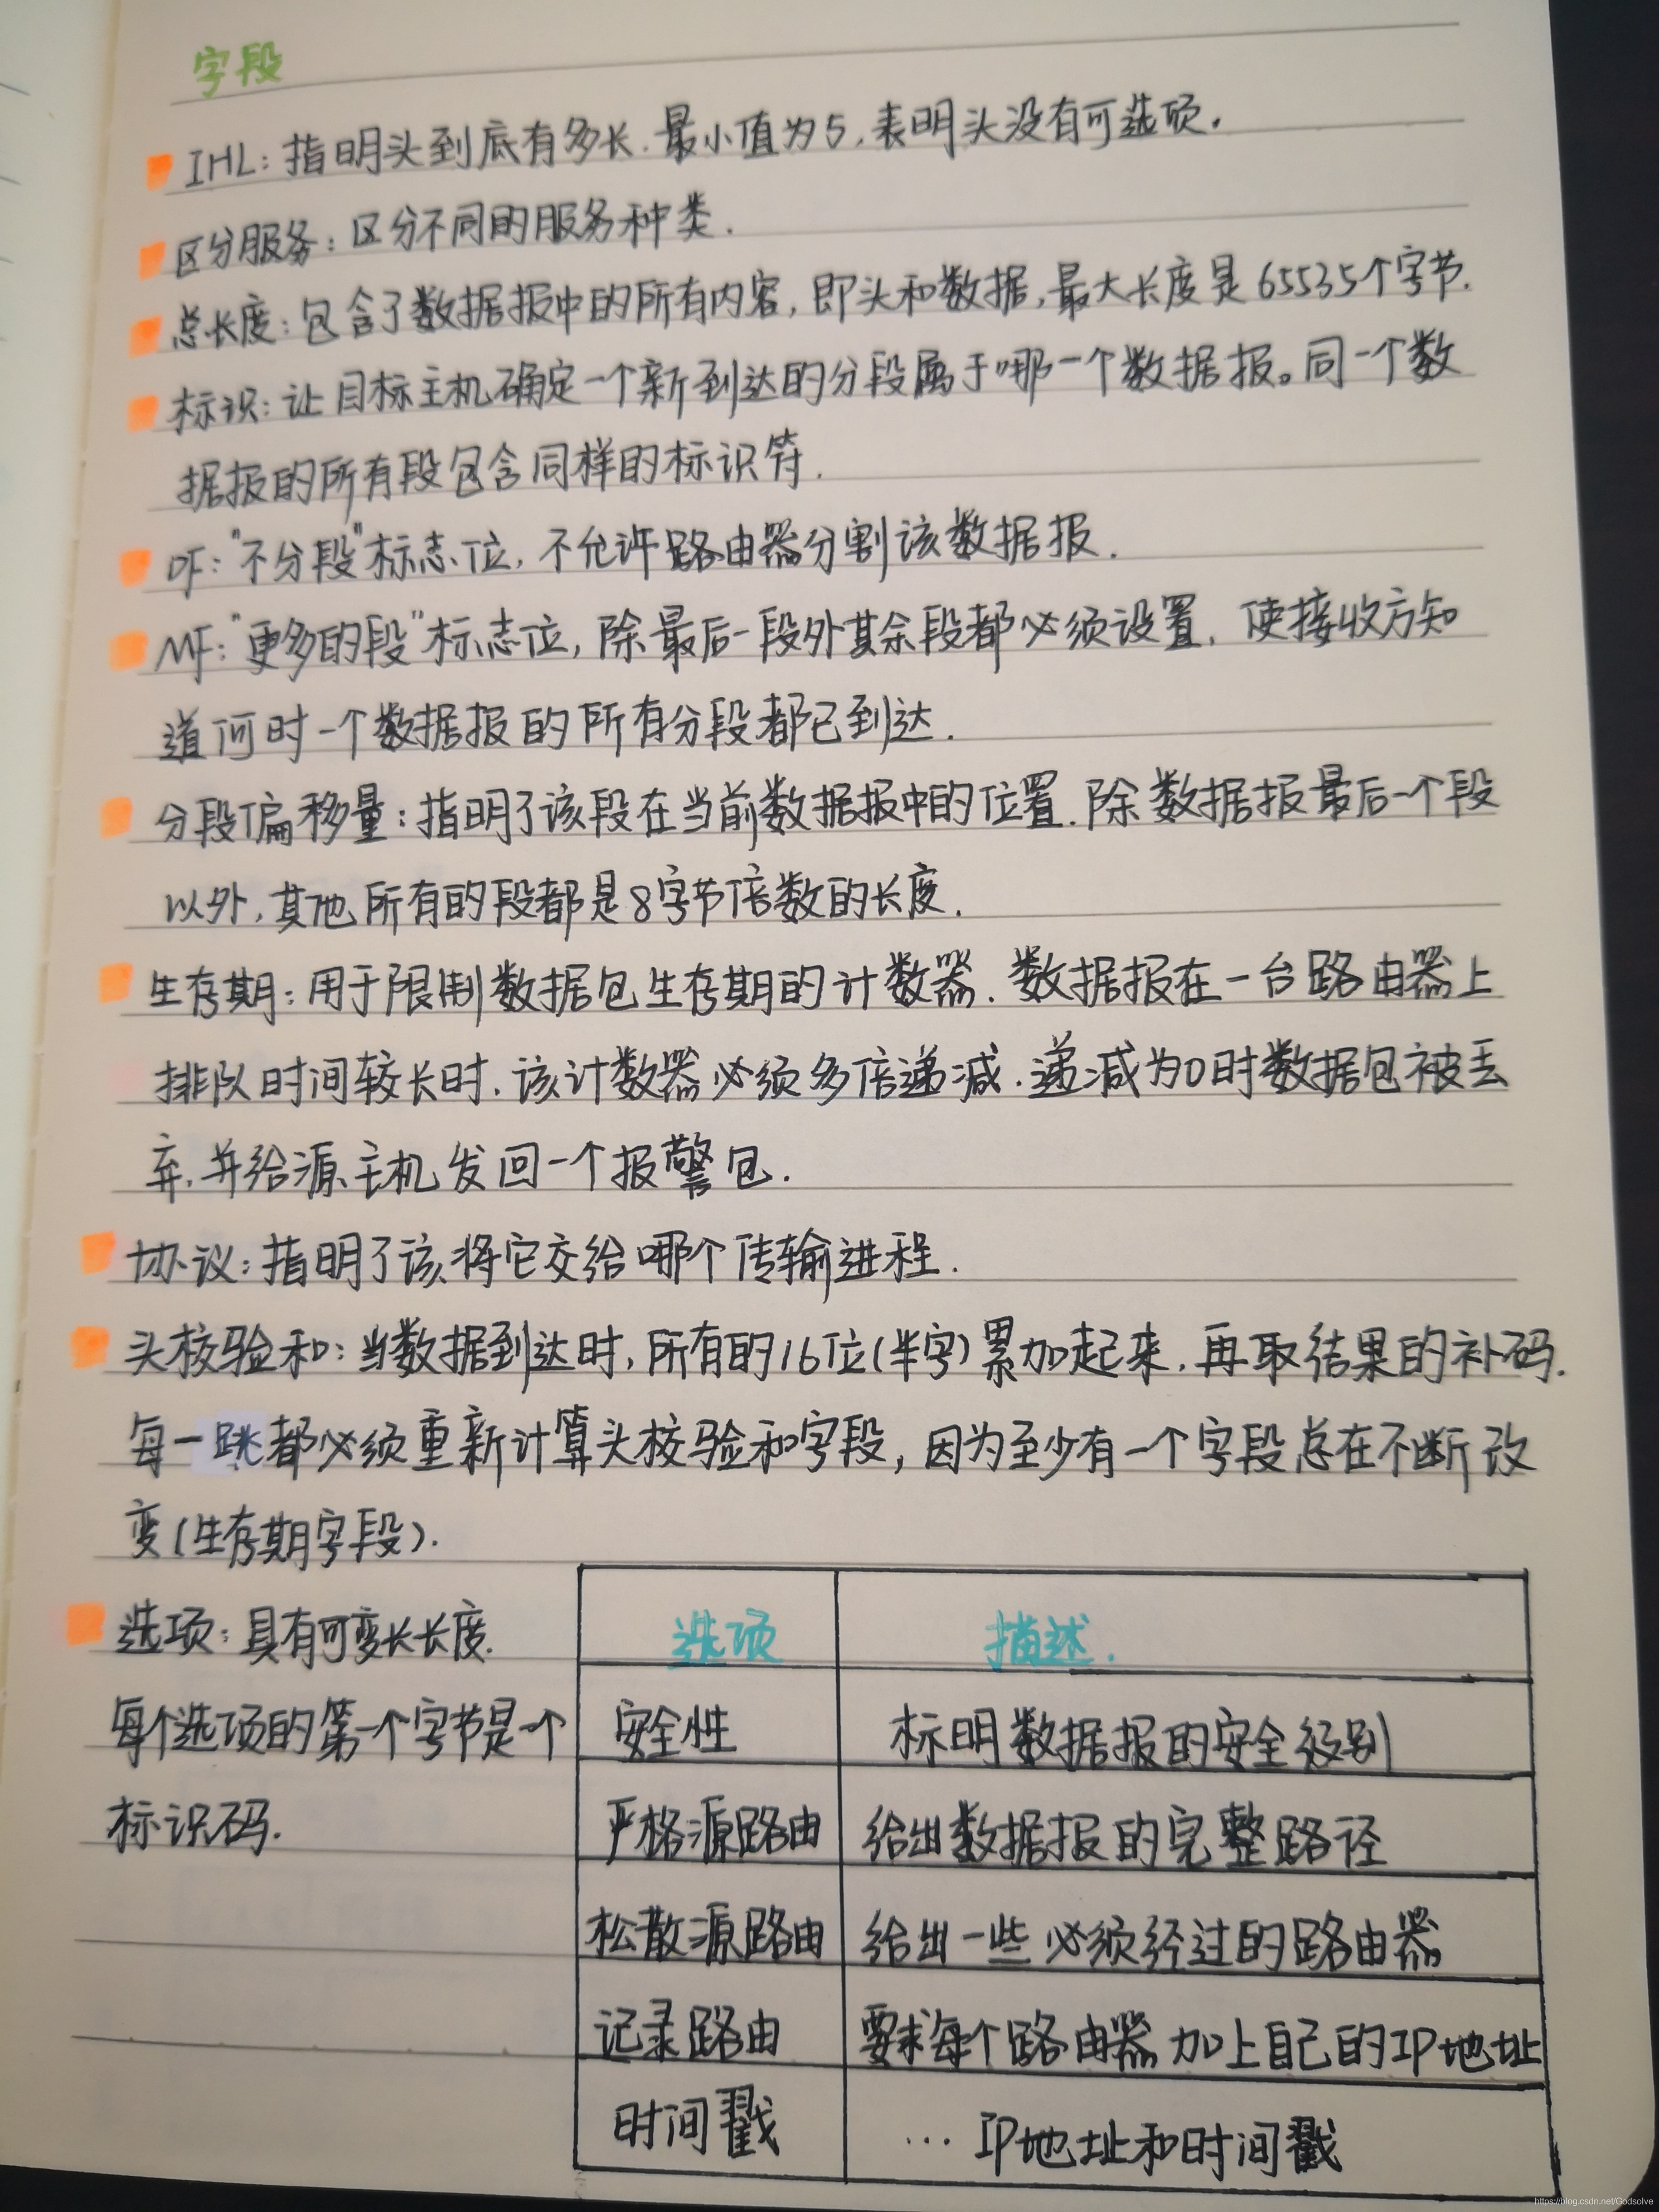 字段
IHL：指明头到底有多长.最小值为5,表明头没有可选项.
区分服务：区分不同的服务种类.
总长度：包含了数据报中的所有内容,即头和数据,最大长度是65535个字节.
标识：让目标主机确定一个新到达的分段属于哪一个数据报。同一个数
据报的所有段包含同样的标识符.
DF："不分段"标志位,不允许路由器分割该数据报.
MF："更多的段"标志位,除最后一段外其余段都必须设置,使接收方知
道何时一个数据报的所有分段都已到达.
分段偏移量：指明了该段在当前数据报中的位置.除数据报最后一个段
以外,其他所有的段都是8字节倍数的长度.
生存期：用于限制数据包生存期的计数器.数据报在一台路由器上
排队时间较长时,该计数器必须多倍递减.递减为0时数据包被丢
弃,并给源主机发回一个报警包.
协议：指明了该将它交给哪个传输进程.
头校验和：当数据到达时,所有的16位(半字)累加起来,再取结果的补码.
每一跳都必须重新计算头校验和字段,因为至少有一个字段总在不断改
变(生存期字段).
选项：具有可变长长度.
每个选项的第一个字节是一个
标识码.
选项 描述.
安全性 标明数据报的安全级别
严格源路由 给出数据报的完整路径
松散源路由 给出一些必须经过的路由器
记录路由 要求每个路由器加上自己的IP地址
时间戳 … IP地址和时间戳
https://blog.csdn.net/Godsolve